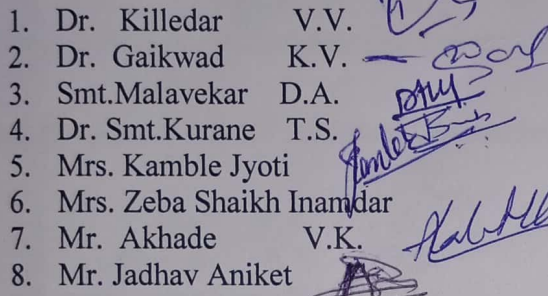 1. Dr. Killedar V.V.
2. Dr. Gaikwad K.V.
3. Smt.Malavekar D.A.
4. Dr. Smt.Kurane T.S.
5. Mrs. Kamble Jyoti
6. Mrs. Zeba Shaikh Inamdar
7. Mr. Akhade V.K.
8. Mr. Jadhav Aniket